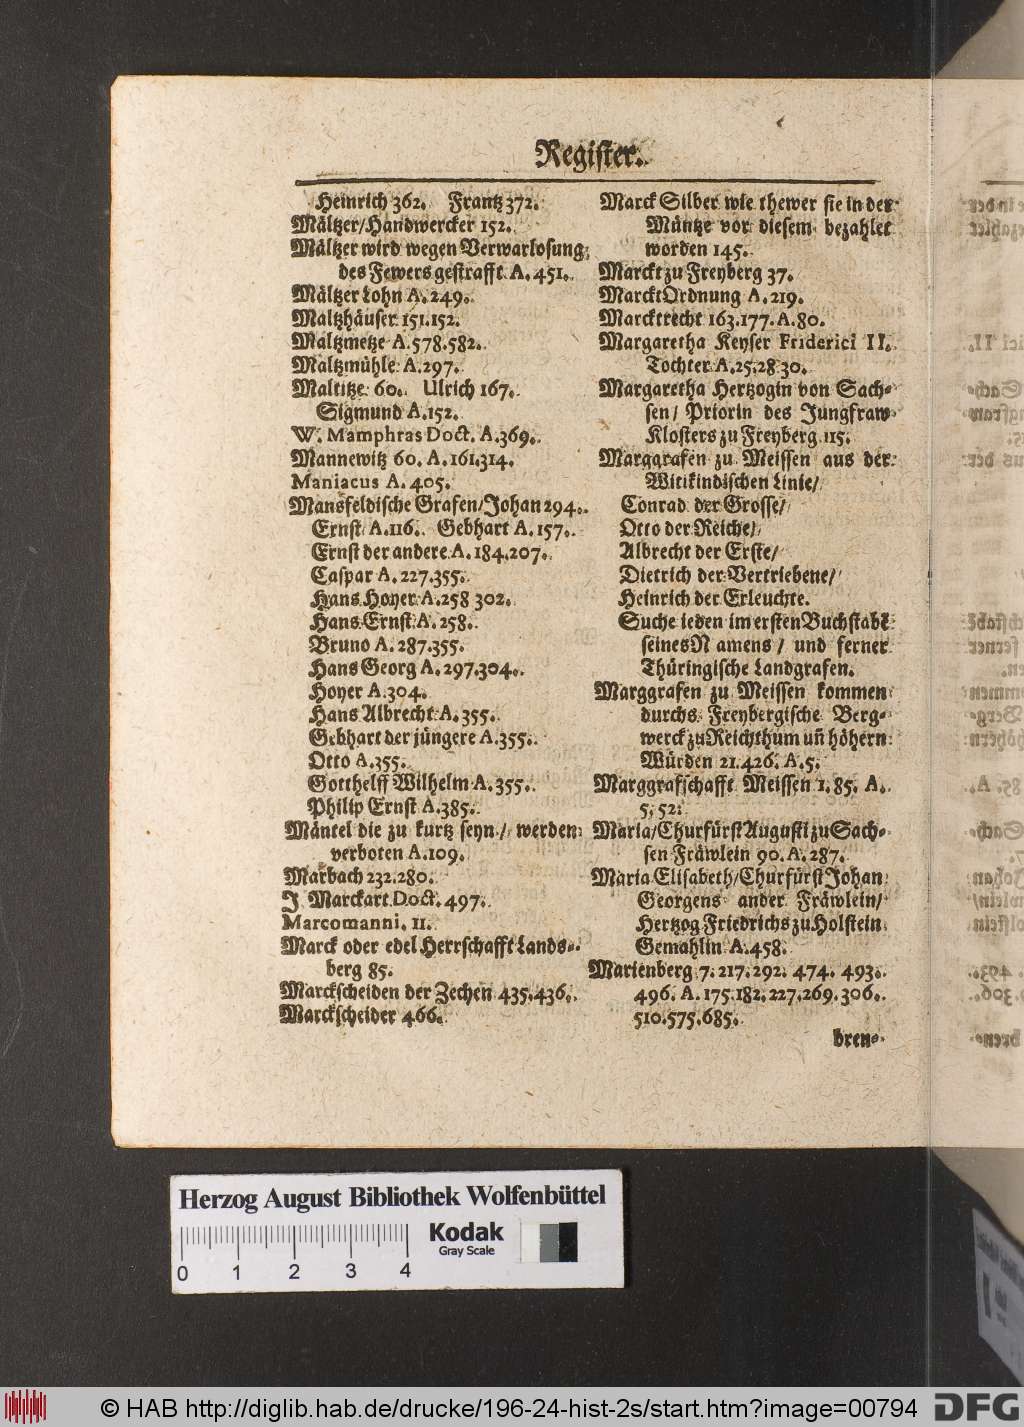 Register.
Heinrich 362. Frantz 372.
Mältzer/Handwercker 152.
Mältzer wird wegen Verwarlosung
des Fewers gestrafft A. 451.
Mältzer Lohn A. 249.
Maltzhäuser 151.152.
Maltzmetze A. 578. 582.
Maltzmühle A. 297.
Maltitze 60. Ulrich 167.
Sigmund A. 152.
W. Mamphras Doct. A. 369.
Mannewitz 60. A. 161. 314.
Maniacus A. 405.
Mansfeldische Grafen/Johan 294.
Ernst A. 116. Gebhart A. 157.
Ernst der andere A. 184.207.
Caspar A. 227.355.
Hans Hoyer A. 258 302.
Hans Ernst A. 258.
Bruno A. 287.355.
Hans Georg A. 297.304.
Hoyer A. 304.
Hans Albrecht A. 355.
Gebhart der jüngere A. 355.
Otto A. 355.
Gotthelff Wilhelm A. 355.
Philip Ernst A. 385.
Mäntel die zu kurtz seyn / werden
verboten A. 109.
Marbach 232.280.
J. Marckart Doct. 497.
Marcomanni. 11.
Marck oder edel Herrschafft Lands-
berg 85.
Marckscheiden der Zechen 435.436.
Marckscheider 466.
Marck Silber wie thewer sie in der
Müntze vor diesem bezahlet
worden 145.
Marckt zu Freyberg 37.
MarcktOrdnung A. 219.
Marcktrecht 163.177. A. 80.
Margaretha Keyser Friderici II.
Tochter A. 25.28 30.
Margaretha Hertzogin von Sach-
sen/ Priorin des Jungfraw-
Klosters zu Freyberg 115.
Marggrafen zu Meissen aus der
Witikindischen Linie/
Conrad der Grosse/
Otto der Reiche/
Albrecht der Erste/
Dietrich der Vertriebene/
Heinrich der Erleuchte.
Suche ieden im ersten Buchstabē
seines N amens / und ferner
Thüringische Landgrafen.
Marggrafen zu Meissen kommen
durchs Freybergische Berg-
werck zu Reichthum uñ höhern
Würden 21.426. A. 5.
Marggrafschafft Meissen 1. 85. A.
5. 52.
Maria/Churfürst Augusti zu Sach-
sen Fräwlein 90. A. 287.
Maria Elisabeth/Churfürst Johan
Georgens ander Fräwlein/
Hertzog Friedrichs zu Holstein
Gemahlin A. 458.
Marienberg 7. 217. 292. 474. 493.
496. A. 175. 182. 227. 269. 306.
510. 575. 685.
bren-
Herzog August Bibliothek Wolfenbüttel
Kodak
Gray Scale
0 1 2 3 4
© HAB http://diglib.hab.de/drucke/196-24-hist-2s/start.htm?image=00794
DFG